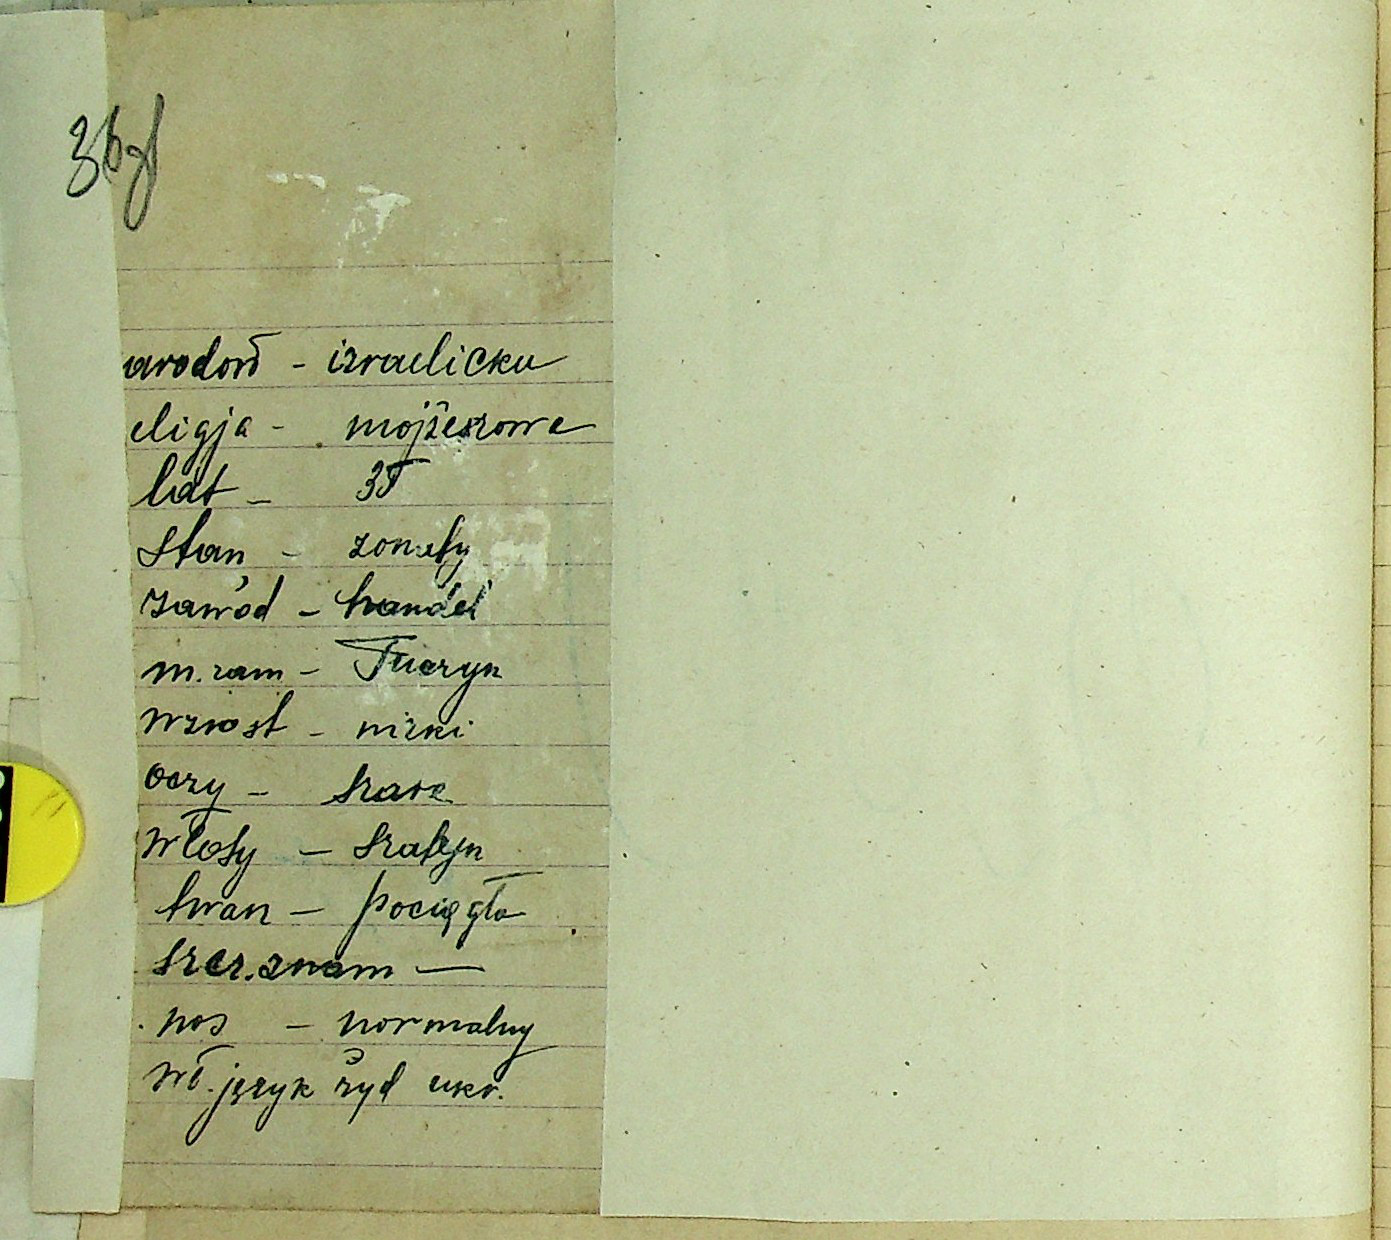 arodoẃ - izraelicka
eligja - mojżeszowe
lat - 35
stan - zonaty
zawód - handel
m. zam - Tuczyn
wzrost - nizki
oczy - szare
włosy - szatyn
twarz - pociągła
szcz. znam —
nos - normalny
wł. język żyd ukr.